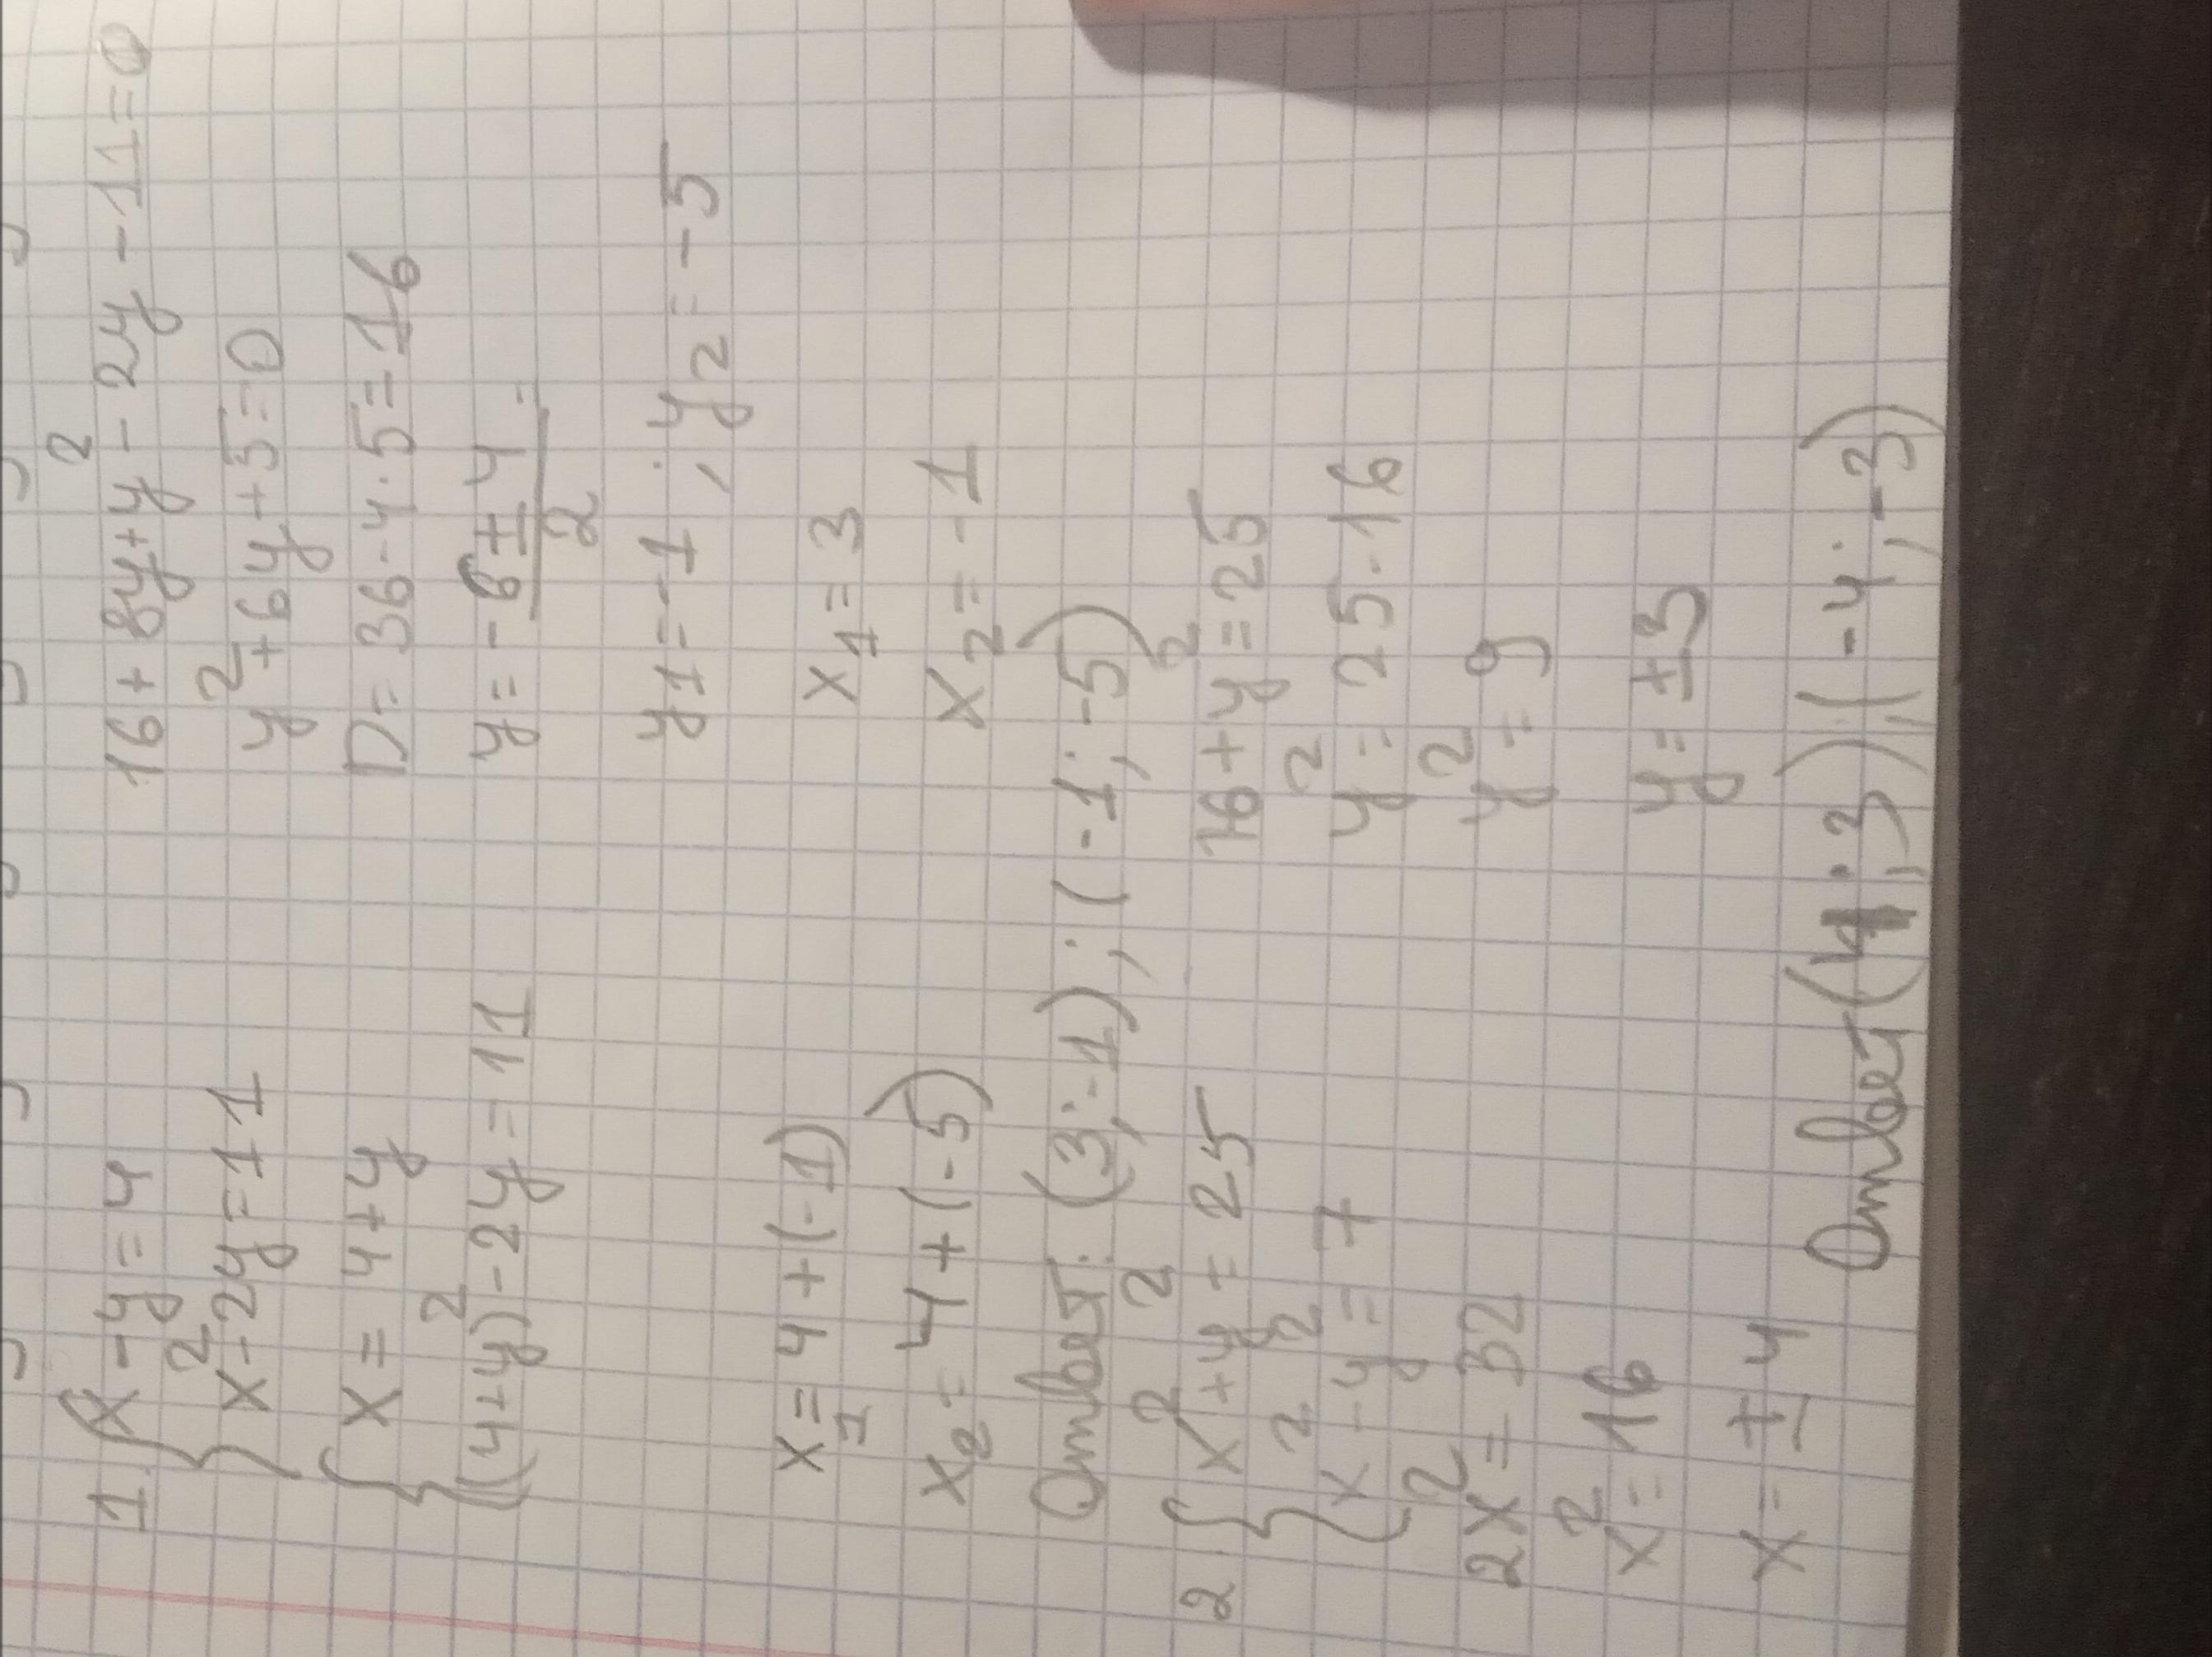 1. { x - y = 4
x² - 2y = 11
{ x = 4 + y
(4+y)² - 2y = 11
16 + 8y + y² - 2y - 11 = 0
y² + 6y + 5 = 0
D = 36 - 4 · 5 = 16
y = (-6 ± 4)/2 =
y1 = -1 ; y2 = -5
x1 = 4 + (-1)
x1 = 3
x2 = 4 + (-5)
x2 = -1
Ответ: (3; -1) ; (-1; -5)
2 { x² + y² = 25
x² - y² = 7
2x² = 32
x² = 16
x = ± 4
16 + y² = 25
y² = 25 - 16
y² = 9
y = ±3
Ответ (4; 3) ,( -4; -3)